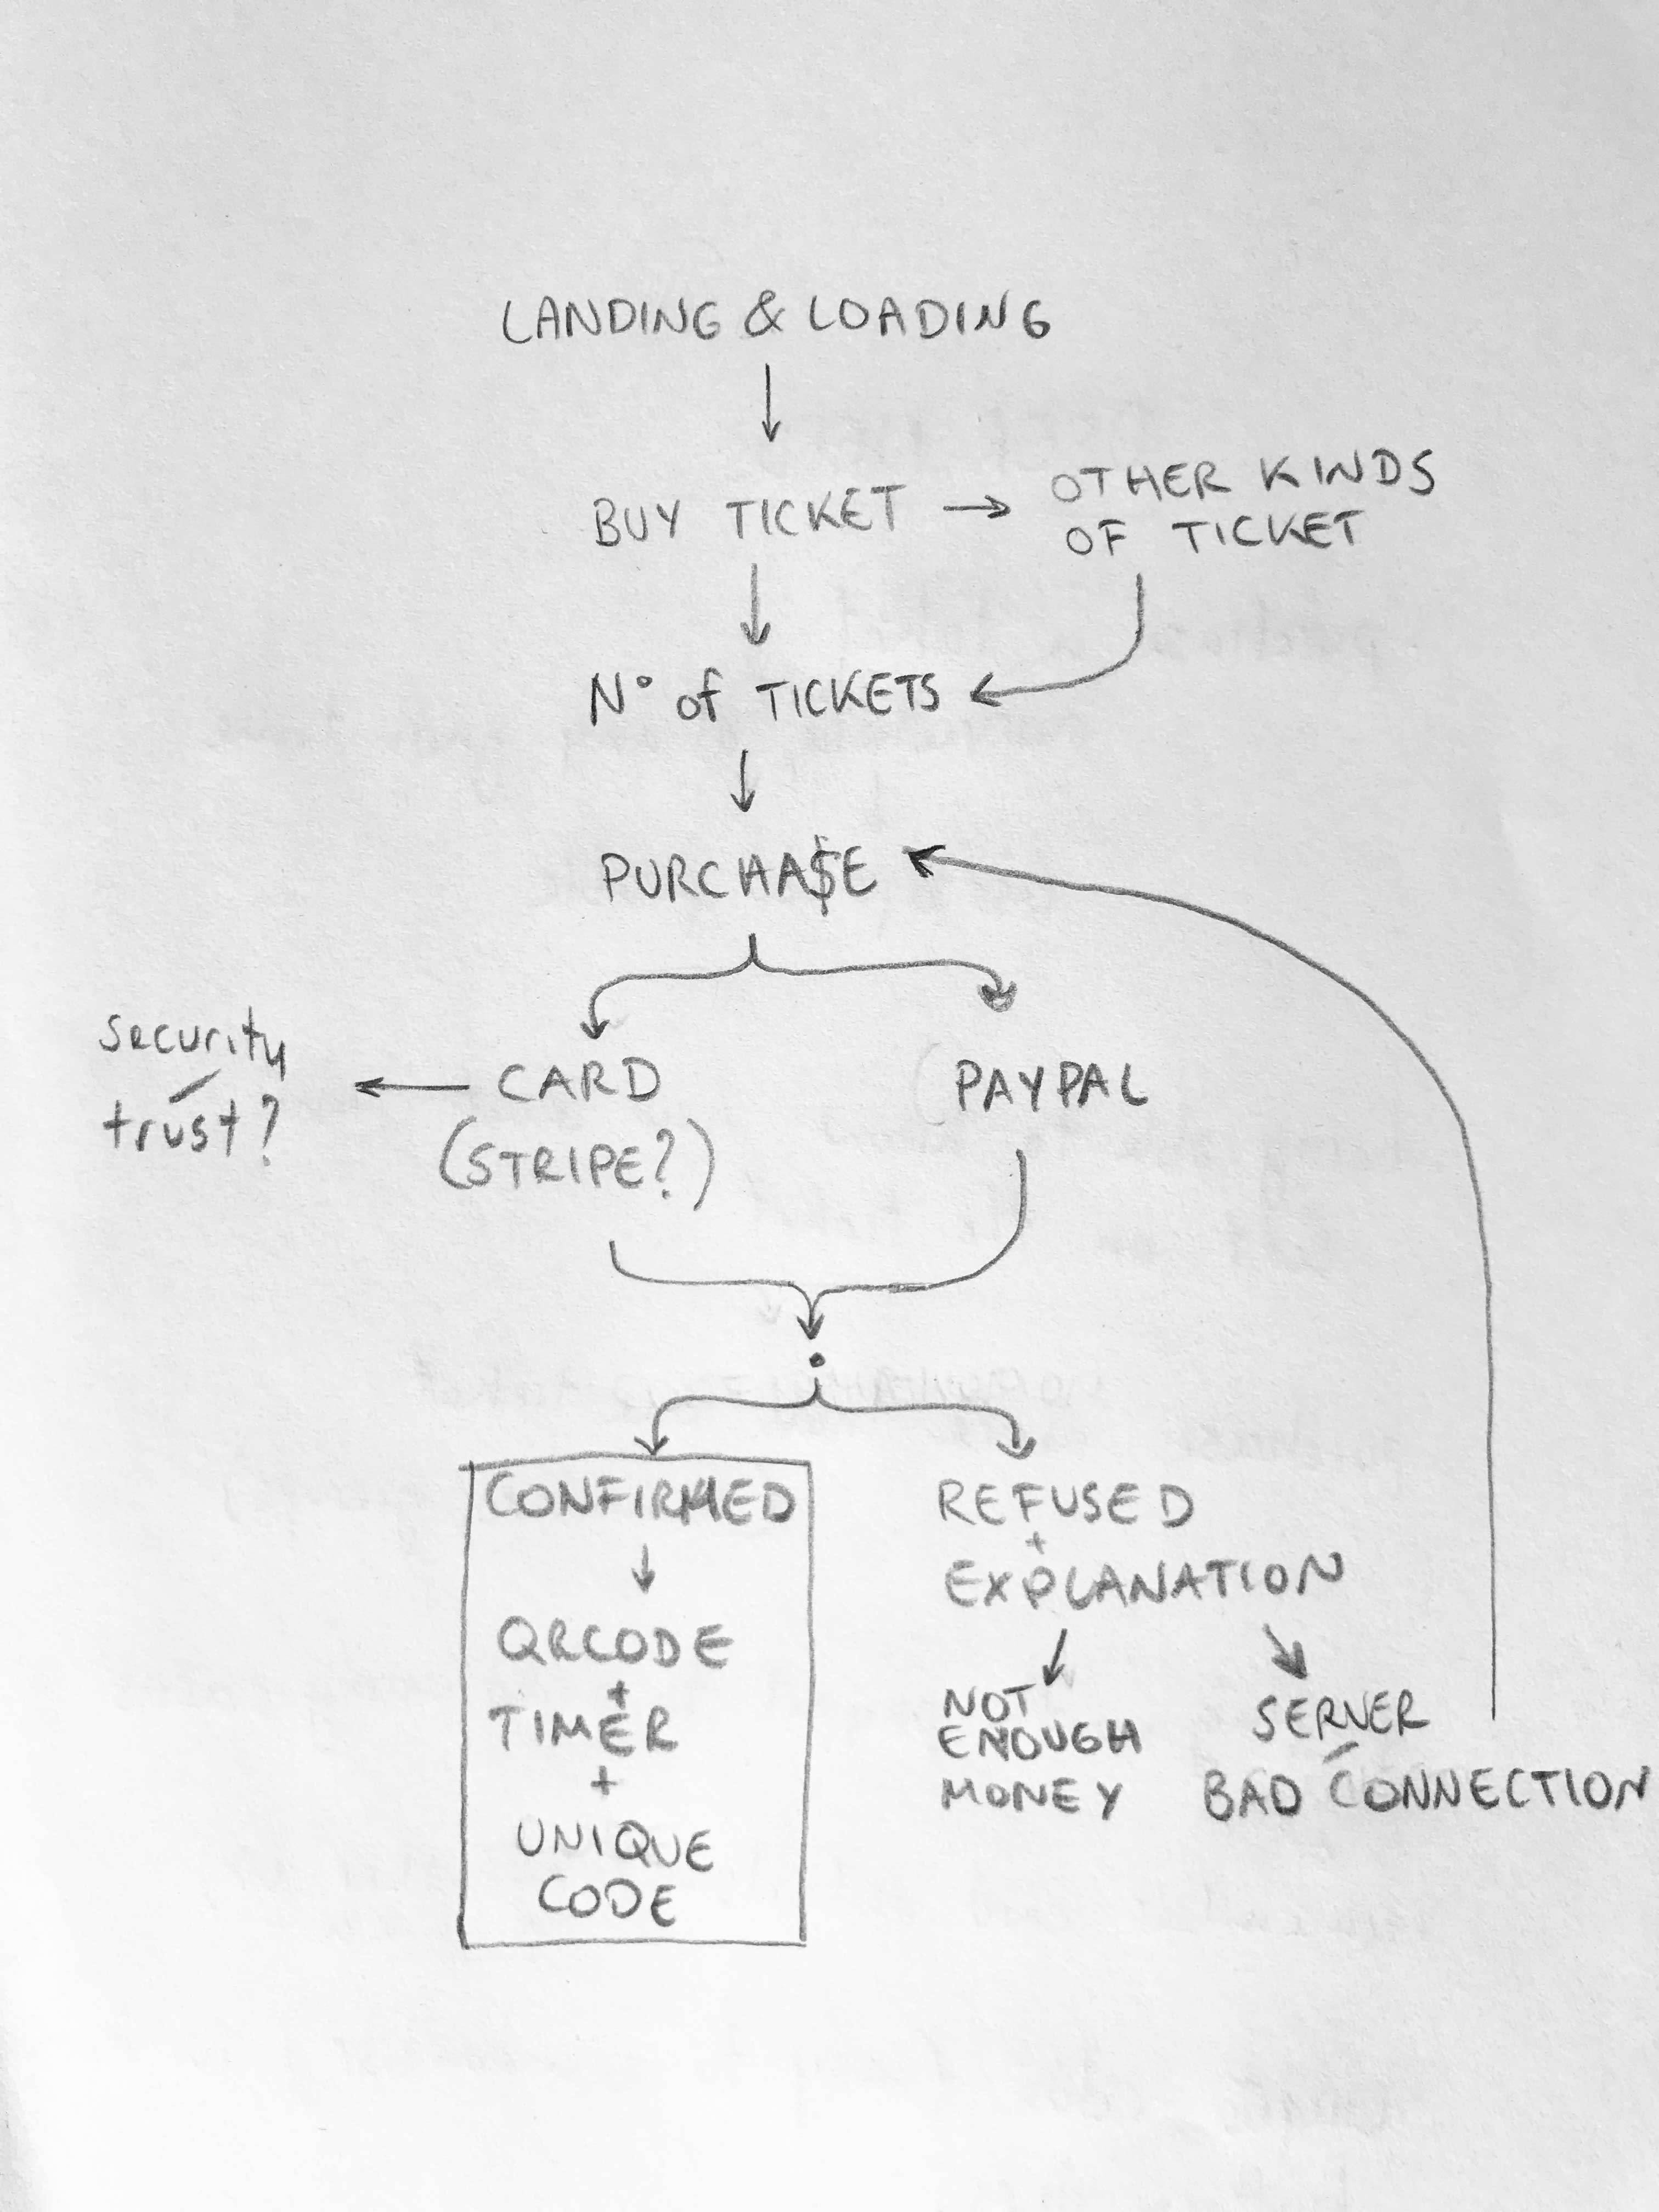 LANDING & LOADING
BUY TICKET → OTHER KINDS
OF TICKET
N° of TICKETS
PURCHA$E
security
/
trust?
CARD
(STRIPE?)
PAYPAL
CONFIRMED
QRCODE
+
TIMER
+
UNIQUE
CODE
REFUSED
+
EXPLANATION
NOT
ENOUGH
MONEY
SERVER
/
BAD CONNECTION